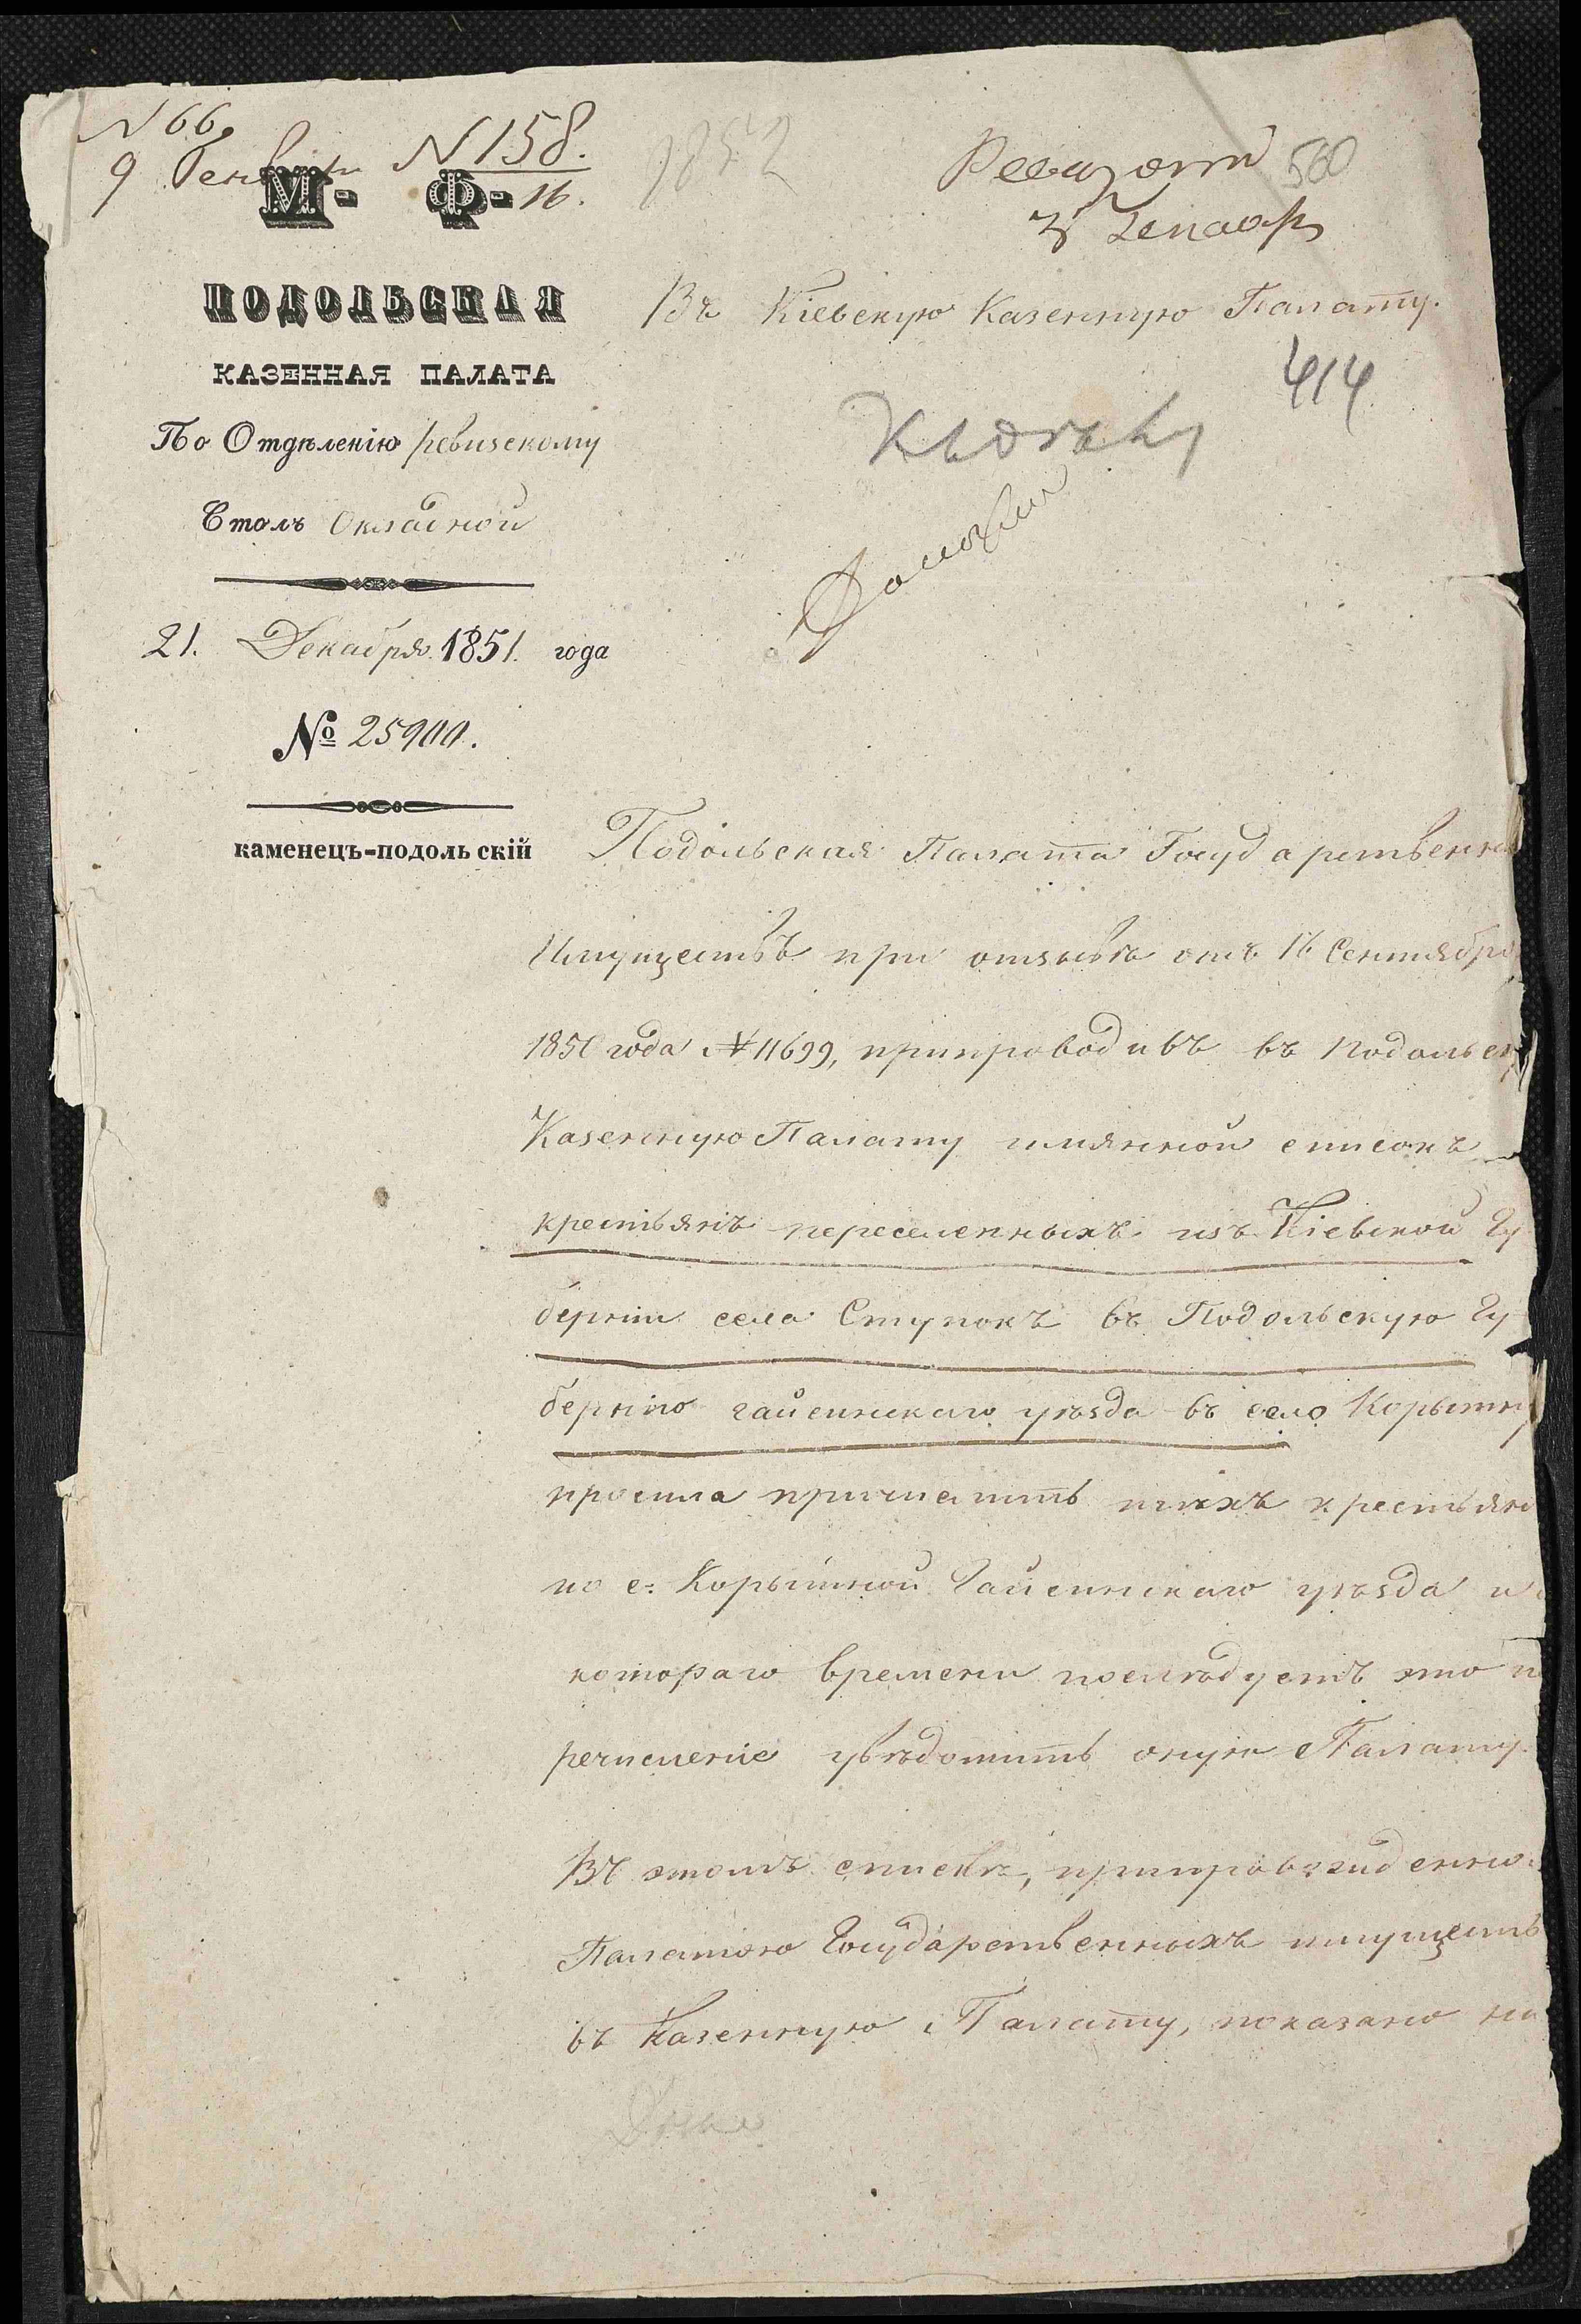 N 66.
9 Генваря
N 158.
16.
1852
560
М. Ф.
ПОДОЛЬСКАЯ
КАЗЕННАЯ ПАЛАТА
По Отдѣленію Ревизскому
Столъ Окладной
21. Декабря 1851. года
№ 25900.
каменецъ-подольскій
Въ Кіевскую Казенную Палату.
414
Къ дѣлу
Подольская Палата Государственны
Имуществъ при отзывѣ отъ 16 Сентября
1850 года № 11699, препроводивъ въ Подольск
Казенную Палату имянной списокъ
крестьянъ переселенныхъ изъ Кіевской Гу
берніи села Ступокъ въ Подольскую Гу
бернію гайсинскаго уѣзда въ село Корытну
просила причислить тѣхъ крестьян
по с: Корытной Гайсинскаго уѣзда и
котораго времени послѣдуетъ это п
речисленіе увѣдомить оную Палату.
Въ этомъ спискѣ, препровожденно
Палатою Государственныхъ имуществ
въ Казенную Палату, показано на